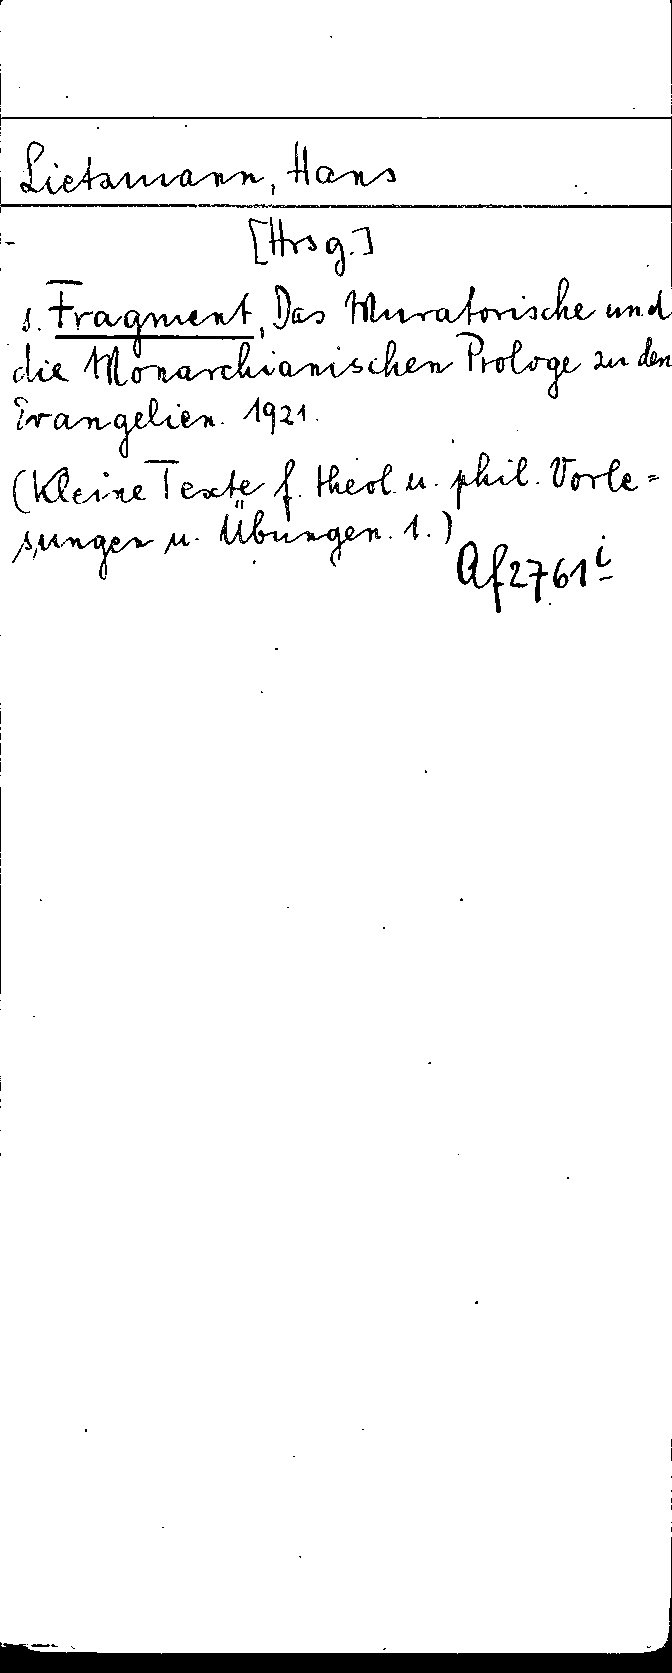 Lietzmann, Hans
[Hrsg.]
s. Fragment, Das Muratorische und
die Monarchianischen Prologe zu den
Evangelien. 1921.
(Kleine Texte f. theol. u. phil. Vorle=
sungen u. Übungen. 1.)
Af 2761 i